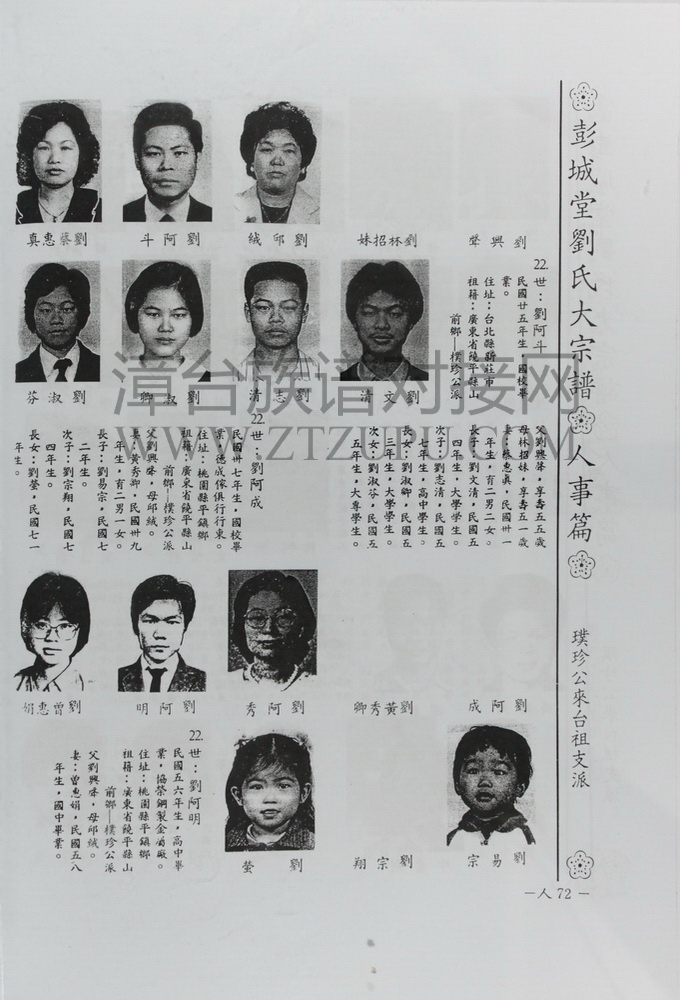 彭城堂劉氏大宗譜
人事篇
璞珍公來台祖支派
—人72—
劉興聲
劉林招妹
劉邱絨
劉阿斗
劉蔡惠真
22.世：劉阿斗
民國廿五年生，國校畢
業。
住址：台北縣新莊市
祖籍：廣東省饒平縣山
前鄉—樸珍公派
父劉興聲，享壽五五歲
母林招妹，享壽五一歲
妻：蔡惠真，民國卅一
年生，有二男二女。
長子：劉文清，民國五
四年生，大學學生。
次子：劉志清，民國五
七年生，高中學生。
長女：劉淑卿，民國五
三年生，大學學生。
次女：劉淑芬，民國五
五年生，大專學生。
劉文清
劉志清
劉淑卿
劉淑芬
22.世：劉阿成
民國卅七年生，國校畢
業，德成傢俱行行東。
住址：桃園縣平鎮鄉
祖籍：廣東省饒平縣山
前鄉—樸珍公派
父劉興聲，母邱絨。
妻：黃秀卿，民國卅九
年生，有二男一女。
長子：劉易宗，民國七
二年生。
次子：劉宗翔，民國七
四年生。
長女：劉螢，民國七一
年生。
劉阿成
劉黃秀卿
劉阿秀
劉阿明
劉曾惠娟
劉易宗
劉宗翔
劉螢
22.世：劉阿明
民國五六年生，高中畢
業，協榮鋼製金屬廠。
住址：桃園縣平鎮鄉
祖籍：廣東省饒平縣山
前鄉—樸珍公派
父劉興聲，母邱絨。
妻：曾惠娟，民國五八
年生，國中畢業。
漳台族谱对接网
WWW.ZTZUPU.COM